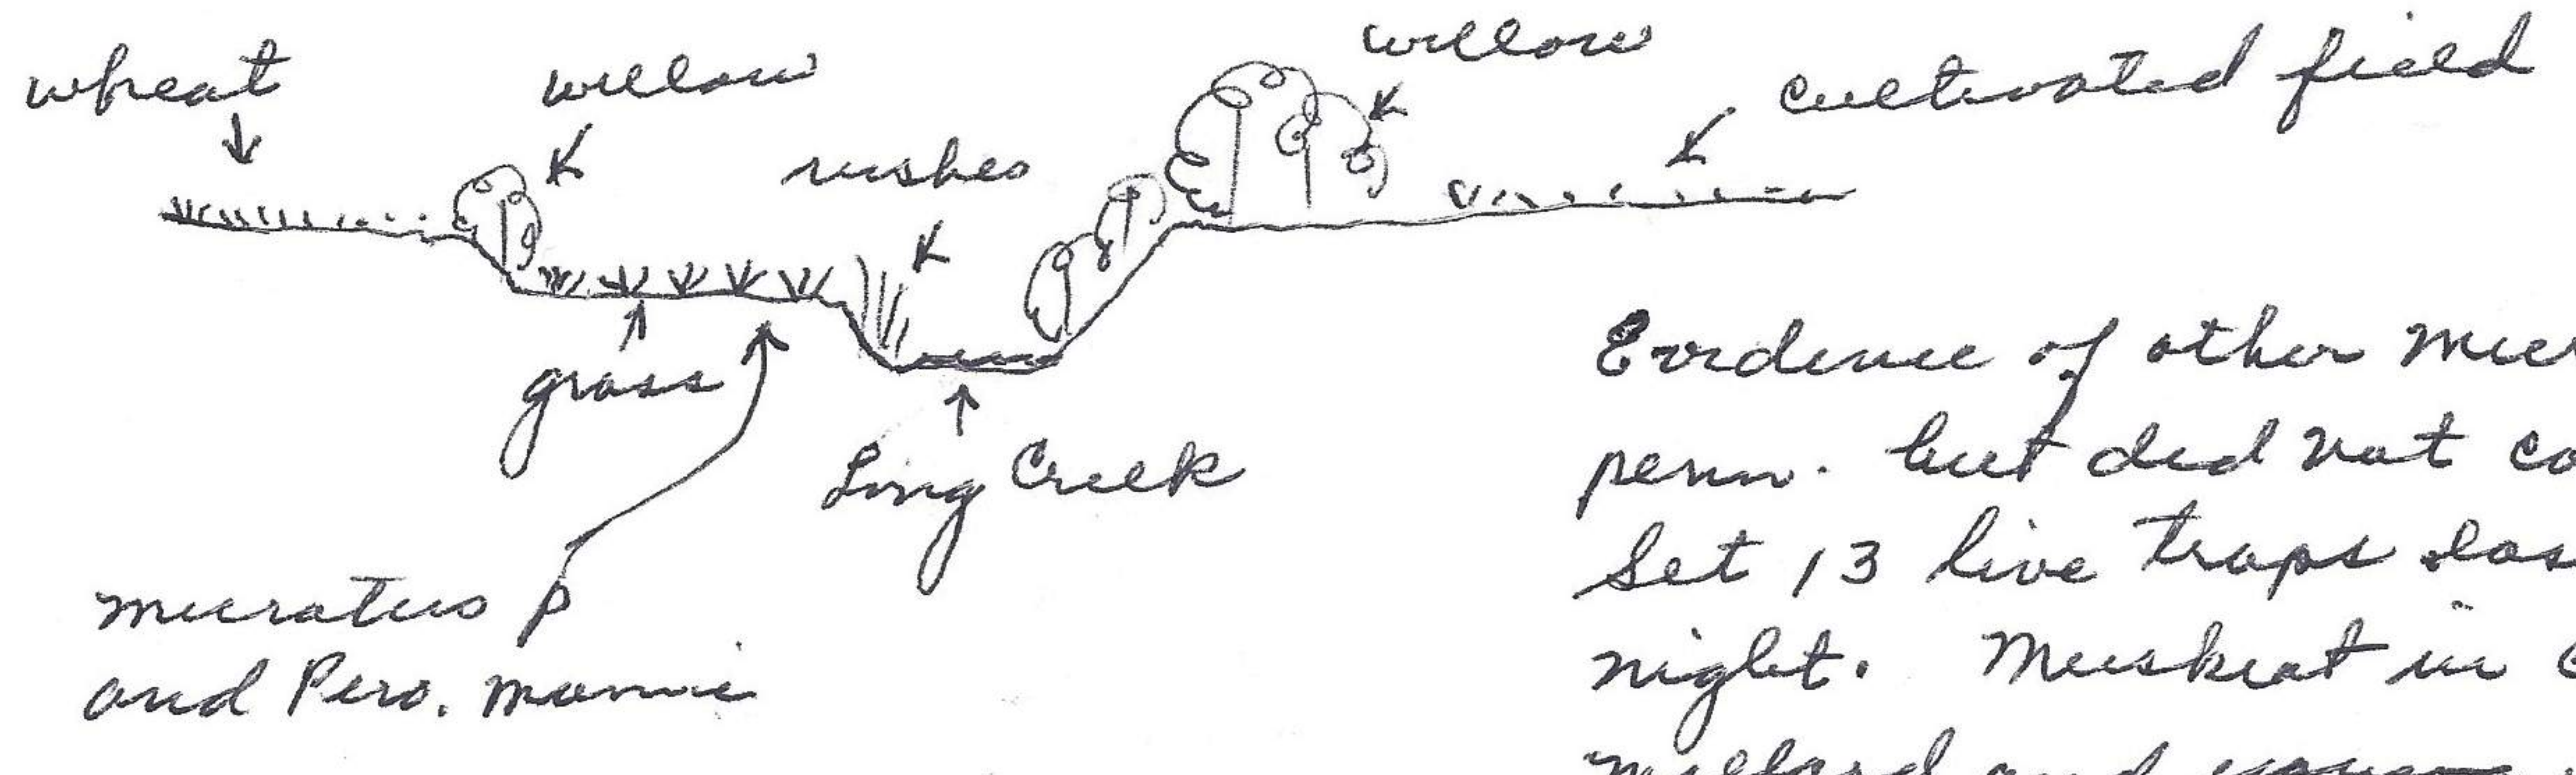 wheat
willow
willow
cultivated field
rushes
grass
Long Creek
microtus p
and Pero. manic
Evidence of other
penn. but did not
Set 13 live traps
night. Muskrat in
and